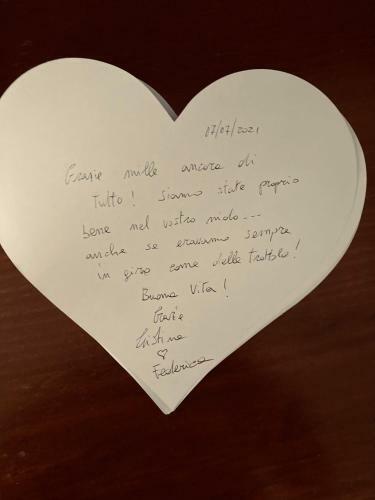 07/07/2021
Grazie mille ancora di
tutto! Siamo state proprio
bene nel vostro nido...
anche se eravamo sempre
in giro come delle trottole!
Buona Vita!
Grazie
Cristina
♡
Federica